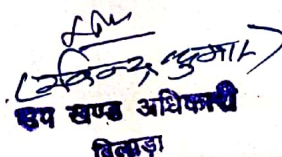 (रविन्द्र कुमार)
उप खण्ड अधिकारी
बिलाड़ा